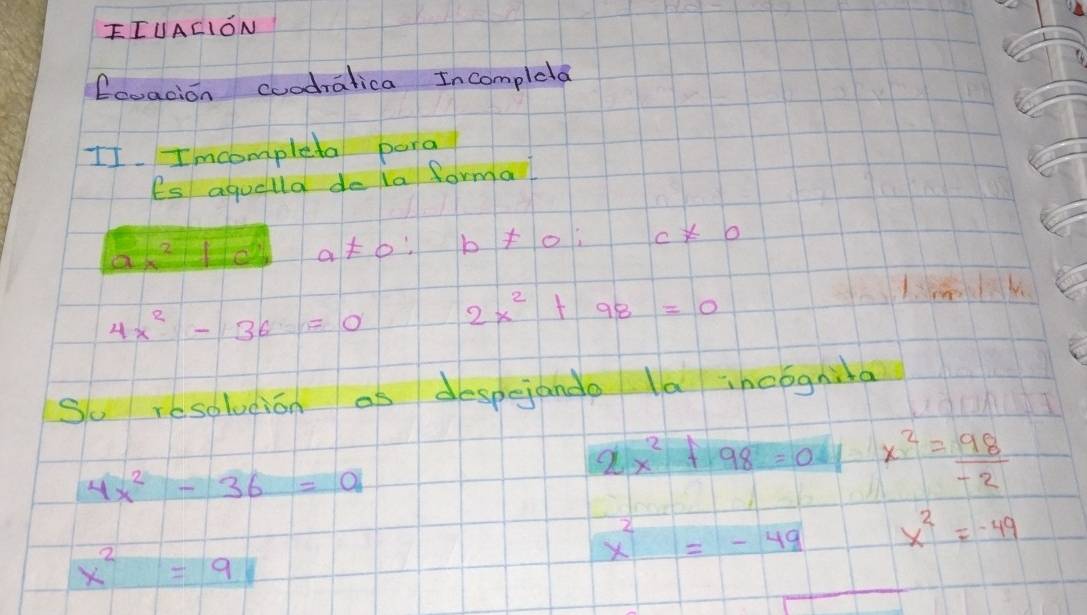 Ecuación cuadrática Incompleta
II- Imcompleta pura
Es aquella de la forma:
ax² + c; a ≠ 0; b ≠ 0; c ≠ 0
4x² - 36 = 0 2x² + 98 = 0
Su resolución es despejando la incógnita
4x² - 36 = 0 2x² + 98 = 0 x² = 98/-2
x² = 9 x² = -49 x² = -49